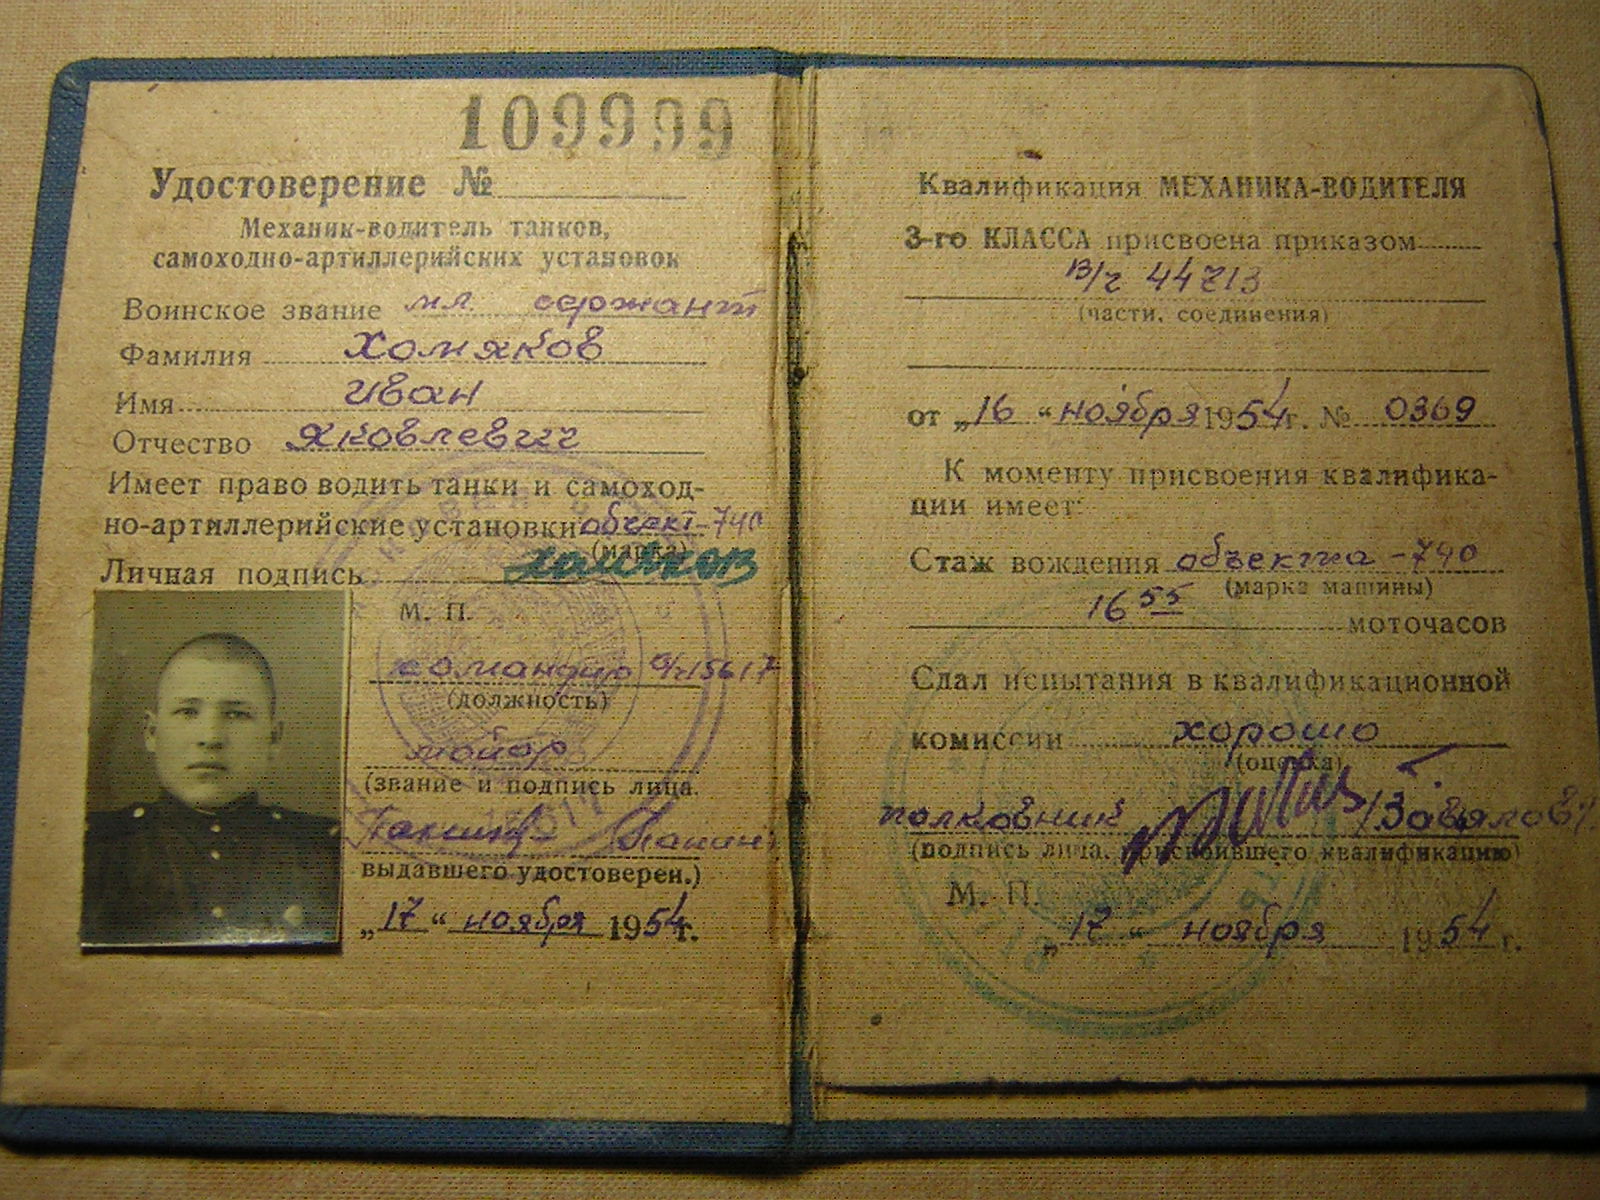 109999
Удостоверение №
Механик-водитель танков,
самоходно-артиллерийских установок
Воинское звание мл. сержант
Фамилия Хомяков
Имя Иван
Отчество Яковлевич
Имеет право водить танки и самоход-
но-артиллерийские установки объект-740
(марка)
Личная подпись Хомяков
М. П.
командир в/ч 15617
(должность)
майор
(звание и подпись лица,
выдавшего удостоверен.)
„17“ ноября 1954г.
Квалификация МЕХАНИКА-ВОДИТЕЛЯ
3-го КЛАССА присвоена приказом
в/ч 44713
(части, соединения)
от „16“ ноября 1954г. № 0369
К моменту присвоения квалифика-
ции имеет:
Стаж вождения объекта-740
(марка машины)
16 55 моточасов
Сдал испытания в квалификационной
комиссии хорошо
(оценка)
полковник /Завялов/
(подпись лица, присвоившего квалификацию)
М. П.
„17“ ноября 1954 г.